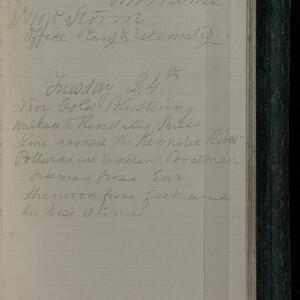 Snow Storm
Office Plans & Estimates.
Tuesday 24th
Very Cold Blustering
walked to Kendalls Mills
Line across the Kennebec River
Pollards
Freeman froze Ear
Sherwood froze feet and
his Nose 3 times